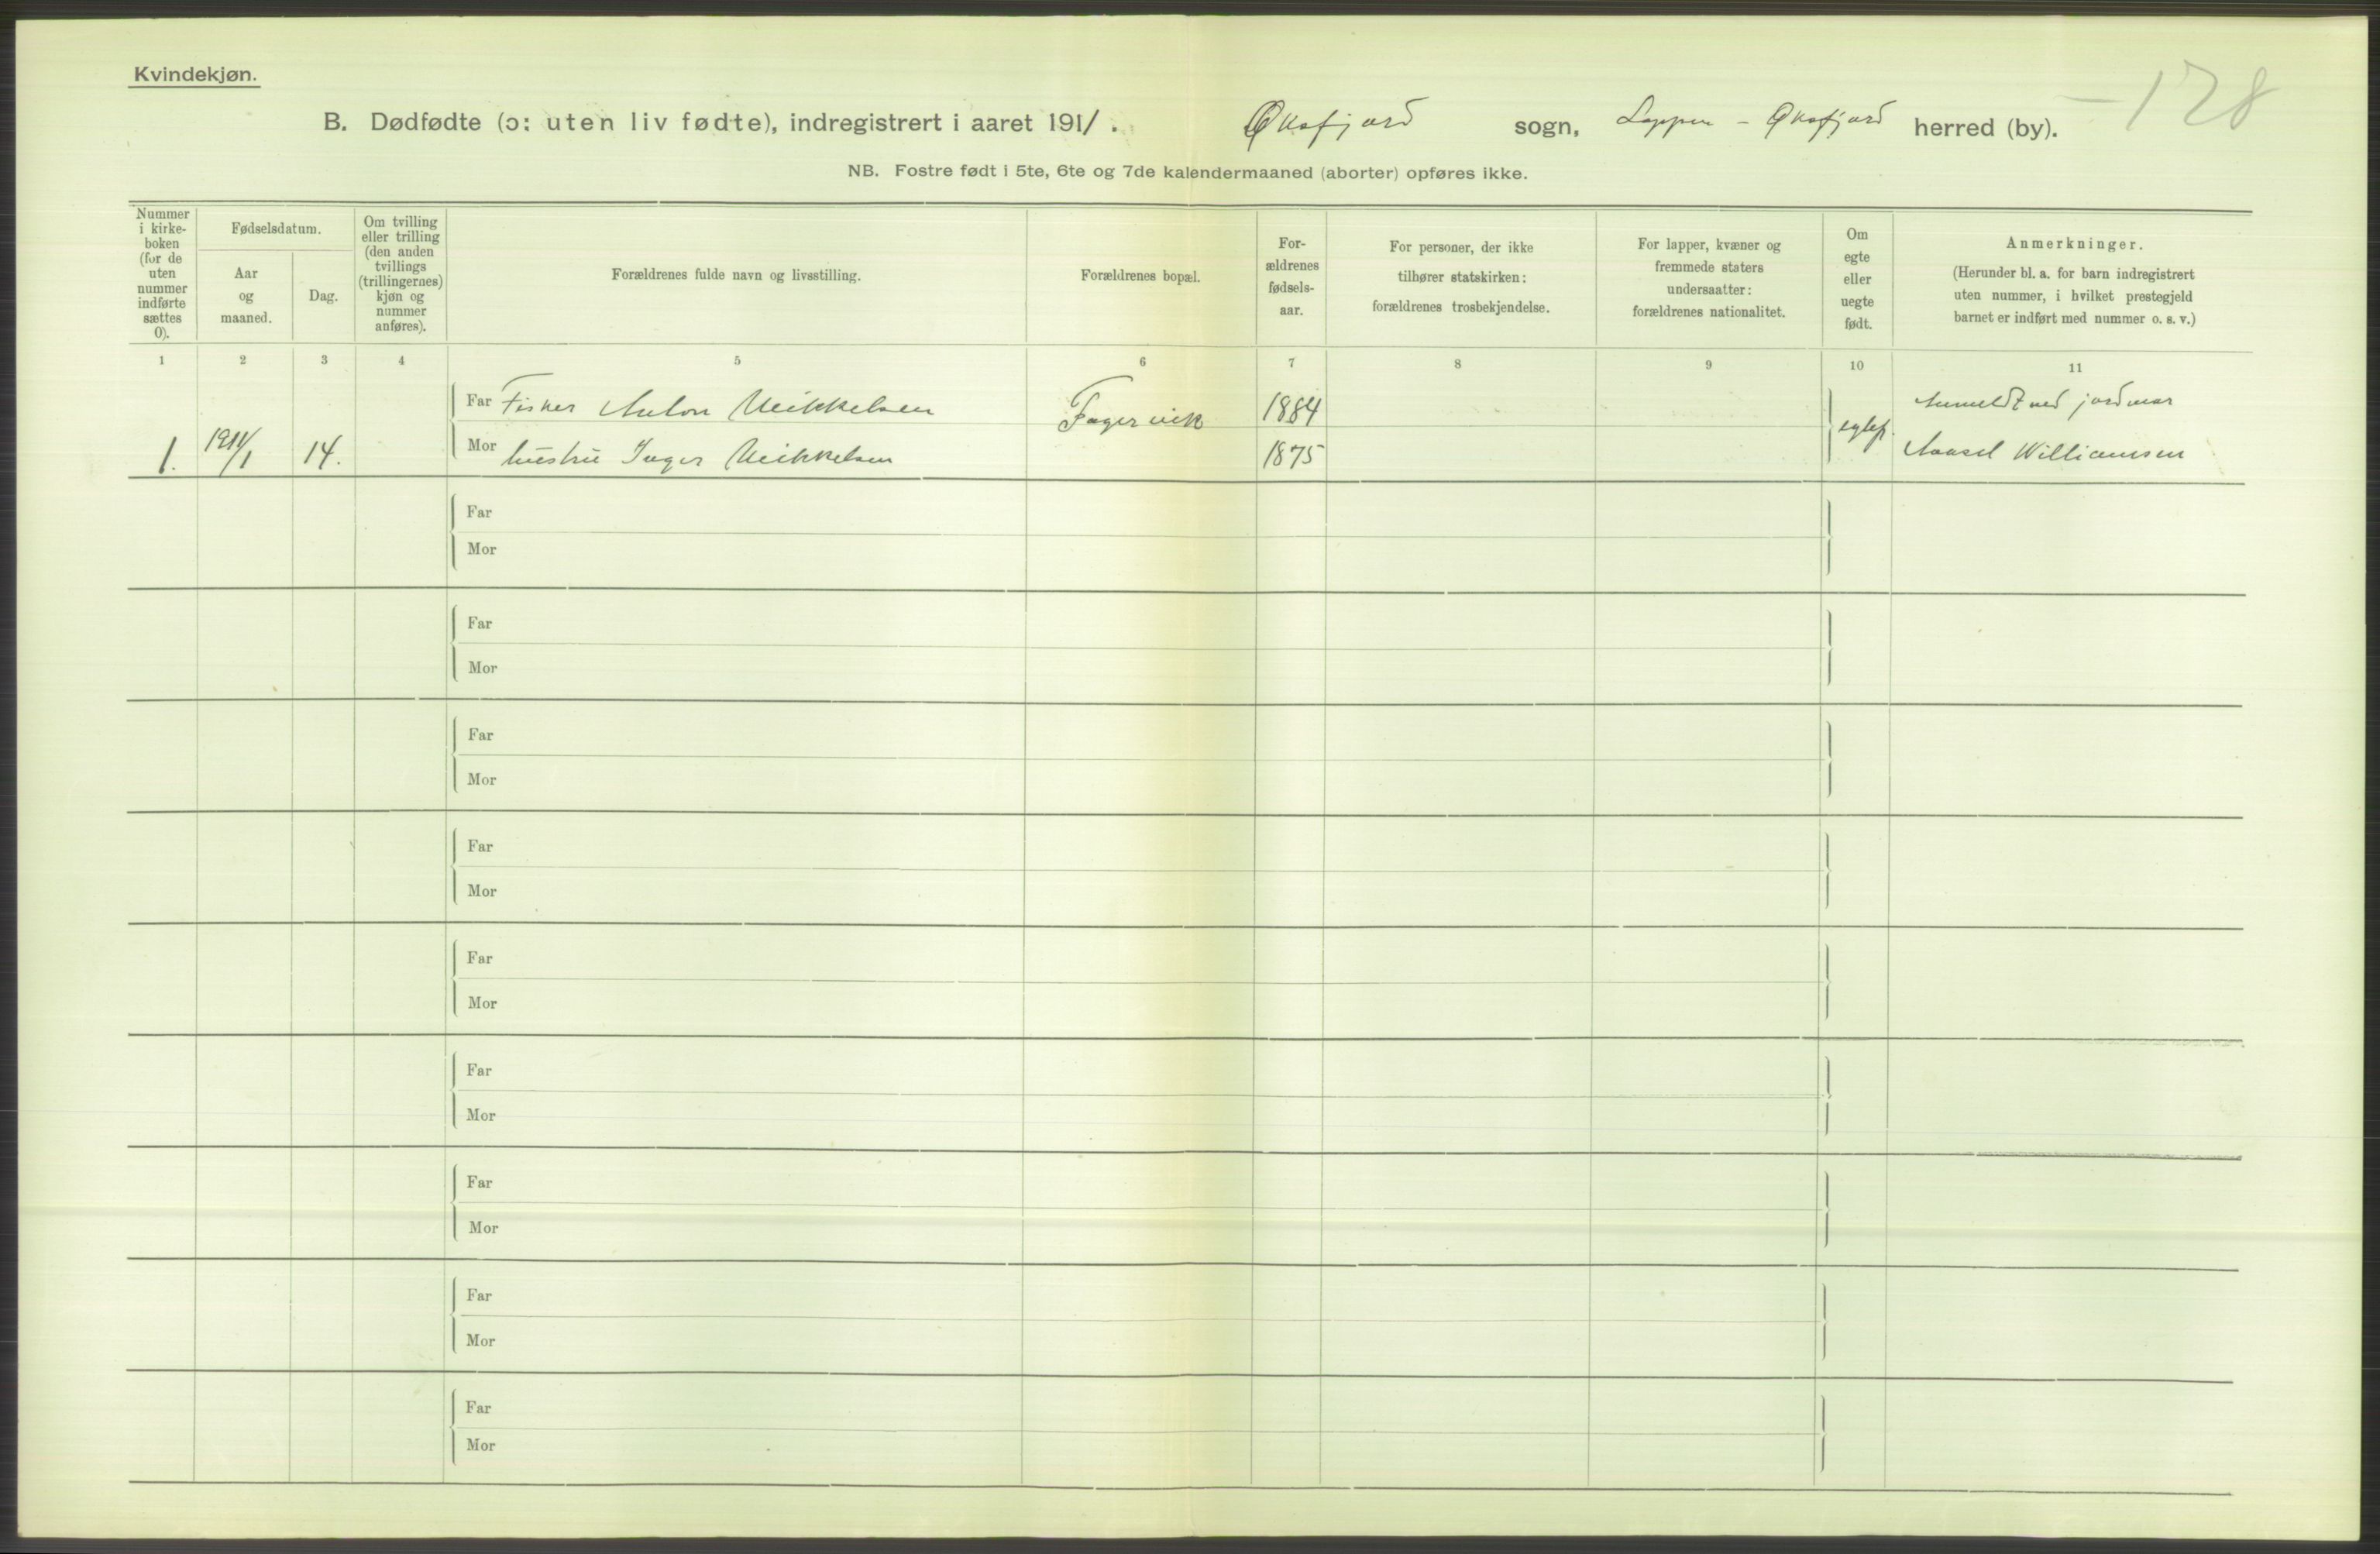 Kvindekjøn.
B. Dødfødte (ɔ: uten liv fødte), indregistrert i aaret 1911. Øksfjord sogn, Loppen - Øksfjord herred (by). - 128
NB. Fostre født i 5te, 6te og 7de kalendermaaned (aborter) opføres ikke.
Nummer
i kirke-
boken
(for de
uten
nummer
indførte
sættes
0).
Fødselsdatum.
Aar
og
maaned.
Dag.
Om tvilling
eller trilling
(den anden
tvillings
(trillingernes)
kjøn og
nummer
anføres).
Forældrenes fulde navn og livsstilling.
Forældrenes bopæl.
For-
ældrenes
fødsels-
aar.
For personer, der ikke
tilhører statskirken:
forældrenes trosbekjendelse.
For lapper, kvæner og
fremmede staters
undersaatter:
forældrenes nationalitet.
Om
egte
eller
uegte
født.
Anmerkninger.
(Herunder bl. a. for barn indregistrert
uten nummer, i hvilket prestegjeld
barnet er indført med nummer o. s. v.)
1 2 3 4 5 6 7 8 9 10 11
1. 1911/1 14.
Far Fisker Anton Mikkelsen
Mor hustru Inger Mikkelsen
Fagervik
1884
1875
egtef.
Anmeldt ved jordmor
Aasel Williamsen
Far
Mor
Far
Mor
Far
Mor
Far
Mor
Far
Mor
Far
Mor
Far
Mor
Far
Mor
Far
Mor